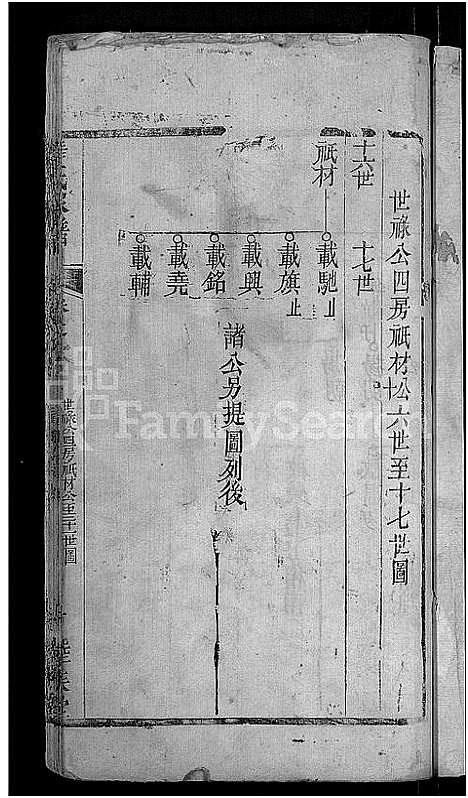 世祿公四房祇材公十六世至十七世圖
十六世
十七世
祇材
載馳止
載旗止
載興
載銘
載堯
載輔
諸公另提圖列後
世祿公四房祇材公至世圖
FamilySearch